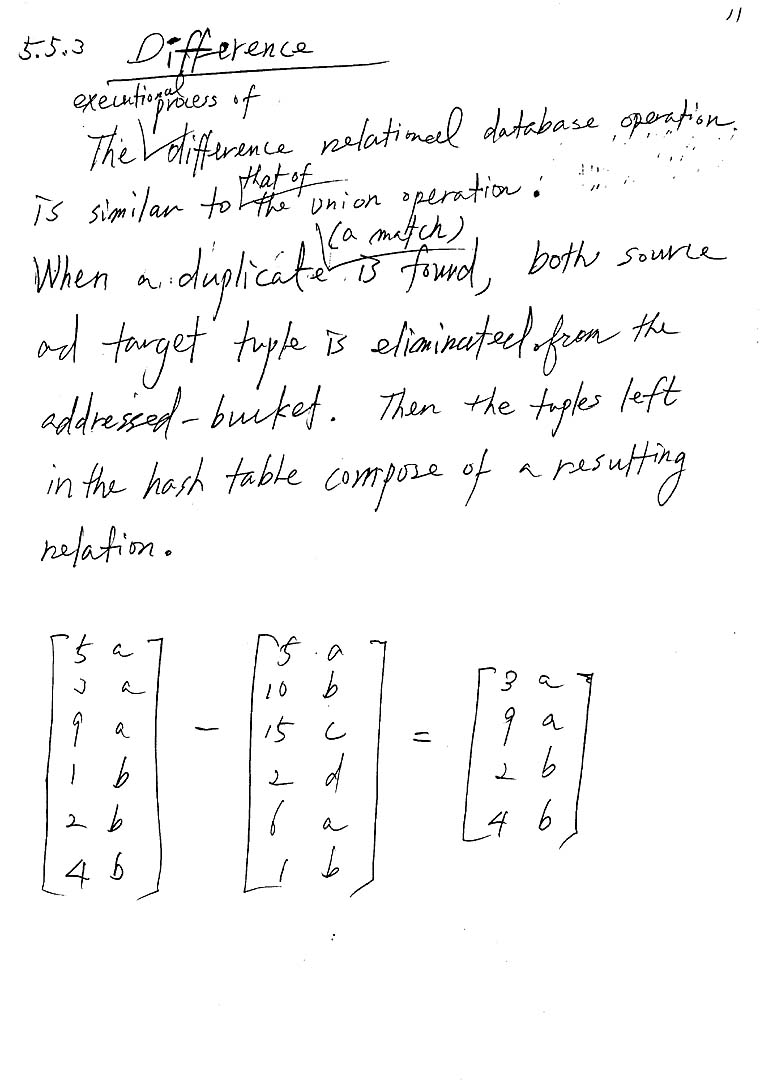 11
5.5.3 Difference
executional process of
The difference relational database operation
is similar to the union operation.
that of
When a duplicate is found, both source
(a match)
ad target tuple is eliminated from the
addressed-bucket. Then the tuples left
in the hash table compose of a resulting
relation.
5 a 5 a
3 a 10 b 3 a
9 a 15 c 9 a
- =
1 b 2 d 2 b
2 b 6 a 4 b
4 b 1 b